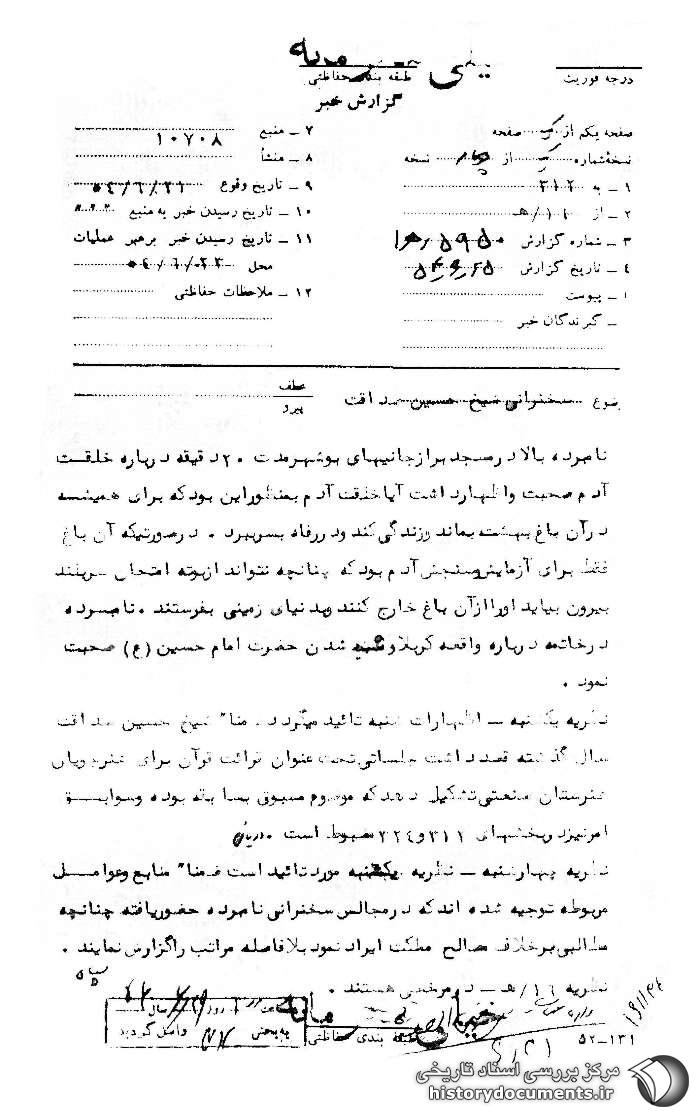 درجه فوریت
طبقه بندی حفاظتی
گزارش خبر
صفحه یکم از یک صفحه
نسخه شماره یک از چهار نسخه
۱ ـ به ۳۱۲
۲ ـ از ۱۱/هـ
۳ ـ شماره گزارش
۴ ـ تاریخ گزارش
۱ ـ پیوست
ـ گیرندگان خبر
۷ ـ منبع ۱۰۷۰۸
۸ ـ منشأ
۹ ـ تاریخ وقوع ۵۴/۶/۲۱
۱۰ ـ تاریخ رسیدن خبر به منبع
۱۱ ـ تاریخ رسیدن خبر برهبر عملیات
محل ۵۴/۶/۲۳
۱۲ ـ ملاحظات حفاظتی
عطف
پیرو
ضوع سخنرانی شیخ حسین صداقت
نامبرده بالا در مسجد برازجانیهای بوشهر مدت ۲۰ دقیقه درباره خلقت
آدم صحبت و اظهار داشت آیا خلقت آدم بمنظور این بود که برای همیشه
در آن باغ بهشت بماند و زندگی کند و در رفاه بسر ببرد . در صورتیکه آن باغ
فقط برای آزمایش و سنجش آدم بود که چنانچه نتواند از بوته امتحان سربلند
بیرون بیاید او را از آن باغ خارج کنند و بدنیای زمینی بفرستند . نامبرده
در خاتمه درباره واقعه کربلا و شهید شدن حضرت امام حسین (ع) صحبت
نمود .
نظریه یکشنبه ـ اظهارات شنبه تائید میگردد . ضمنا" شیخ حسین صداقت
سال گذشته قصد داشت جلساتی تحت عنوان قرائت قرآن برای هنرجویان
هنرستان صنعتی تشکیل دهد که موضوع مسبوق بسابقه بوده و سوابق
امر نیز در بخشهای ۳۱۲ و ۲۲۴ مضبوط است .
نظریه چهارشنبه ـ نظریه یکشنبه مورد تائید است ضمنا" منابع و عوامل
مربوطه توجیه شده اند که در مجالس سخنرانی نامبرده حضور یافته چنانچه
مطالبی برخلاف مصالح مملکت ایراد نمود بلافاصله مراتب را گزارش نمایند .
نظریه ۱۶/هـ ـ در مرخصی هستند .
طبقه بندی حفاظتی
به بخش
واصل گردید
۵۲ـ۱۳۱
مرکز بررسی اسناد تاریخی
historydocuments.ir